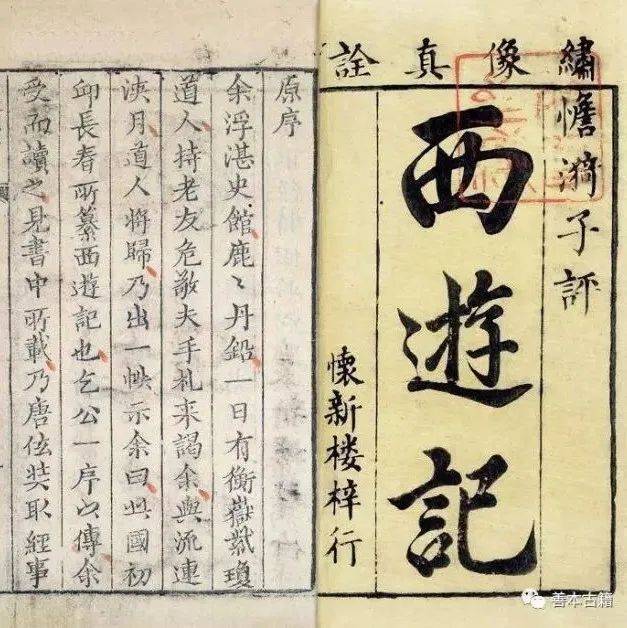 繡像真詮
憺漪子評
西遊記
懷新楼梓行
原序
余浮湛史館鹿〻丹鉛一日有衡嶽紫瓊
道人持老友危敬夫手札来謁余與流連
浹月道人將歸乃出一帙示余曰此國初
邱長春所纂西遊記也乞公一序以傳余
受而讀之見書中所載乃唐伭奘取經事
善本古籍